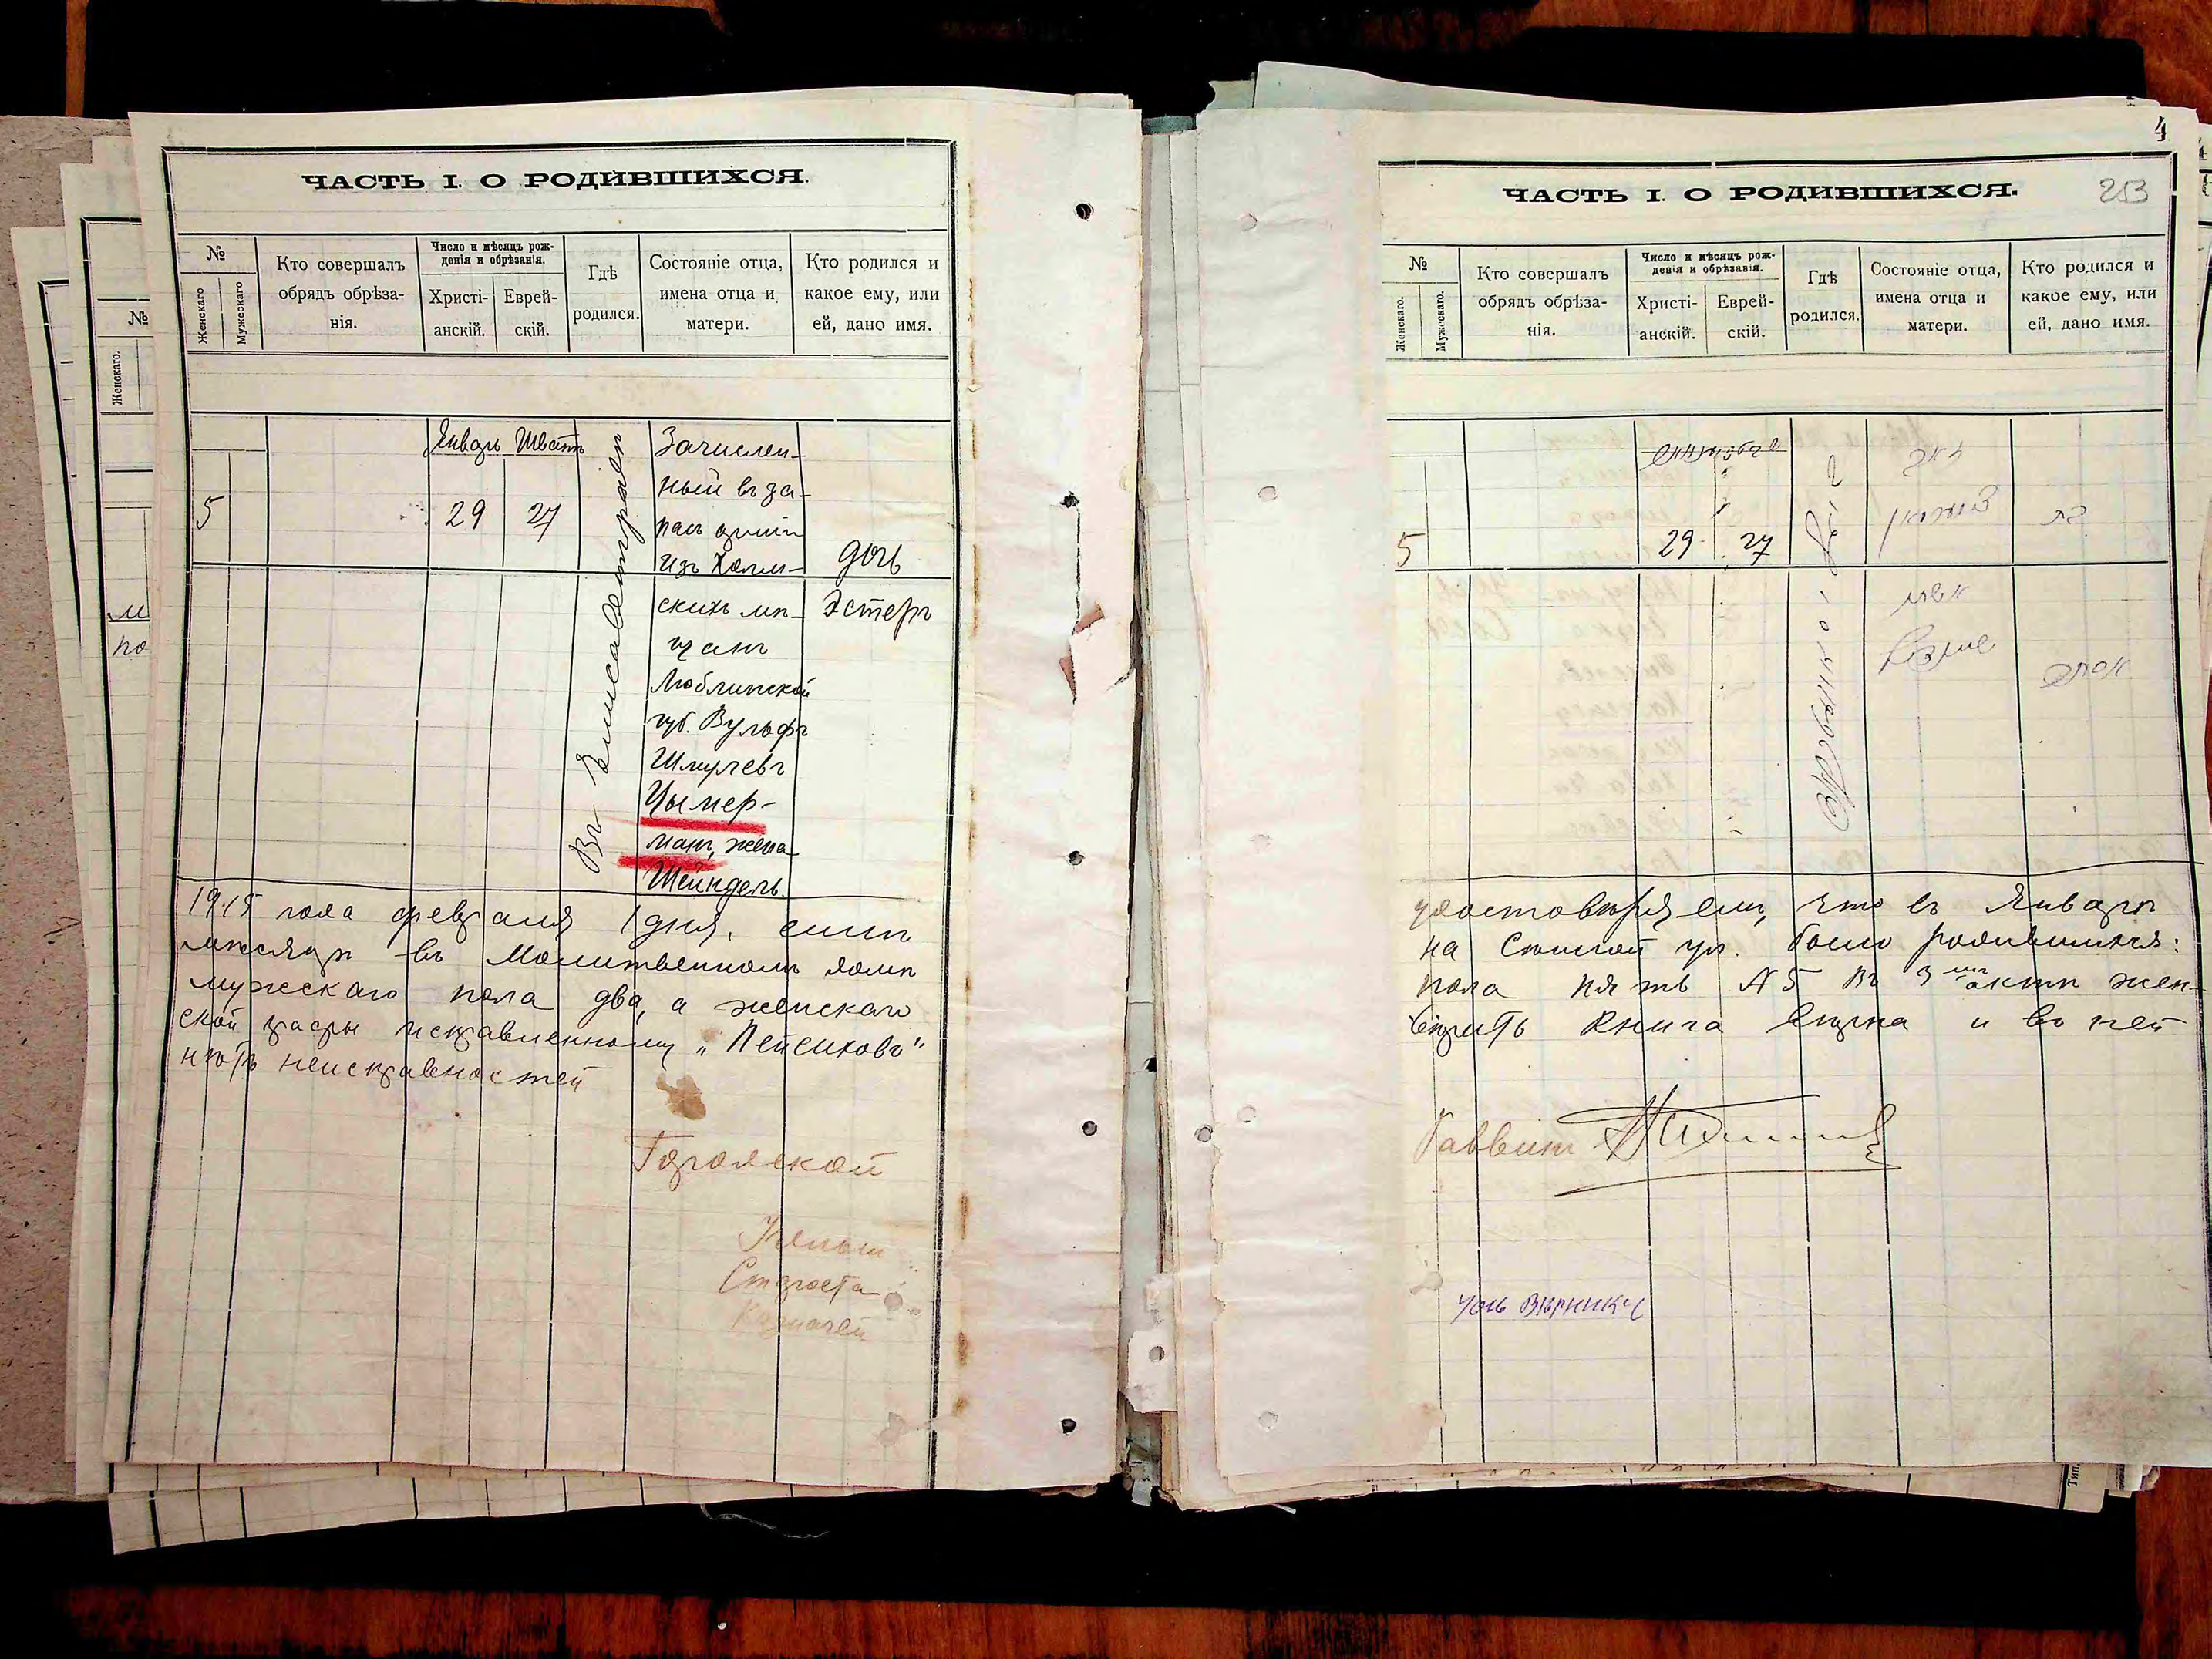 ЧАСТЬ I. О РОДИВШИХСЯ.
№
Женскаго
Мужескаго
Кто совершалъ
обрядъ обрѣза-
нія.
Число и мѣсяцъ рож-
денія и обрѣзанія.
Христі-
анскій.
Еврей-
скій.
Гдѣ
родился.
Состояніе отца,
имена отца и
матери.
Кто родился и
какое ему, или
ей, дано имя.
5
Январь Шватъ
29 27
Въ Елисаветградѣ
Зачислен-
ный въ за-
пасъ арміи
изъ Холм-
скихъ мѣ-
щанъ
Люблинской
губ. Вульфъ
Шмулевъ
Цымер-
манъ, жена
Шейндель.
дочь
Эстеръ
1915 года февраля 1 дня, симъ
мѣсяцѣ въ Молитвенномъ домѣ
мужскаго пола два, а женскаго
ской графы исправленному „Пейсиховъ"
нѣтъ неисправностей
Городской
Ученый
Староста
Казначей
№
Женскаго.
4
ЧАСТЬ I. О РОДИВШИХСЯ.
253
№
Женскаго.
Мужескаго.
Кто совершалъ
обрядъ обрѣза-
нія.
Число и мѣсяцъ рож-
денія и обрѣзанія.
Христі-
анскій.
Еврей-
скій.
Гдѣ
родился.
Состояніе отца,
имена отца и
матери.
Кто родился и
какое ему, или
ей, дано имя.
5
29 27
удостовѣряемъ, что въ Январѣ
на Сѣнной ул. было родившихся:
пола пять № 5 Въ 3мъ актѣ жен-
вѣрить Книга вѣрна и въ ней
Раввинъ